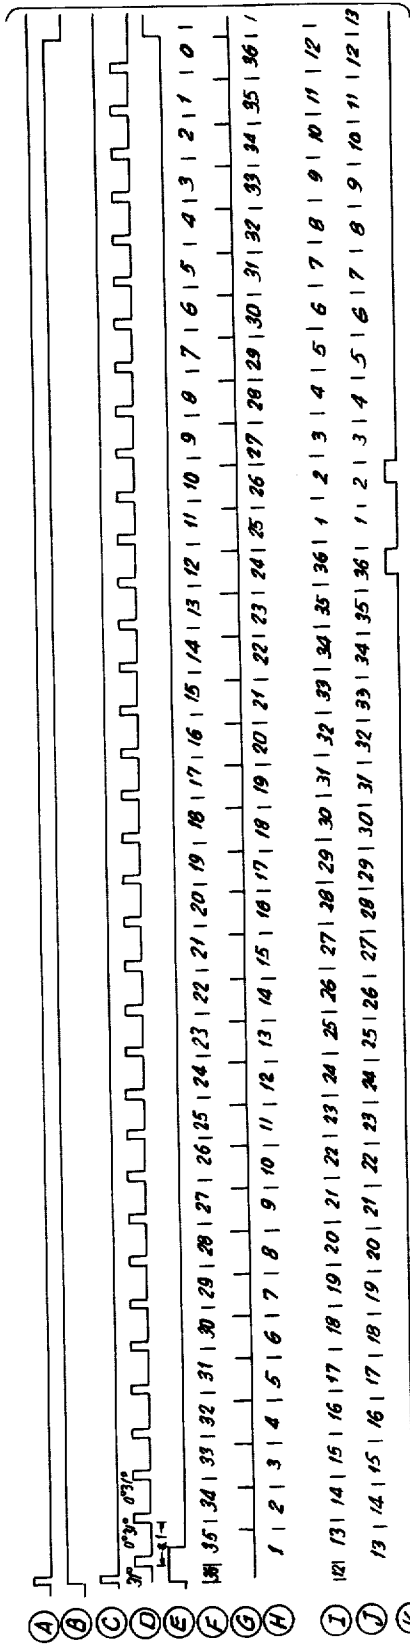 A
B
C
D 31° 0°31° 0°31°
E
F |36| 35 | 34 | 33 | 32 | 31 | 30 | 29 | 28 | 27 | 26 | 25 | 24 | 23 | 22 | 21 | 20 | 19 | 18 | 17 | 16 | 15 | 14 | 13 | 12 | 11 | 10 | 9 | 8 | 7 | 6 | 5 | 4 | 3 | 2 | 1 | 0 |
G
H 1 | 2 | 3 | 4 | 5 | 6 | 7 | 8 | 9 | 10 | 11 | 12 | 13 | 14 | 15 | 16 | 17 | 18 | 19 | 20 | 21 | 22 | 23 | 24 | 25 | 26 | 27 | 28 | 29 | 30 | 31 | 32 | 33 | 34 | 35 | 36 | 1
I |12| 13 | 14 | 15 | 16 | 17 | 18 | 19 | 20 | 21 | 22 | 23 | 24 | 25 | 26 | 27 | 28 | 29 | 30 | 31 | 32 | 33 | 34 | 35 | 36 | 1 | 2 | 3 | 4 | 5 | 6 | 7 | 8 | 9 | 10 | 11 | 12 |
J 13 | 14 | 15 | 16 | 17 | 18 | 19 | 20 | 21 | 22 | 23 | 24 | 25 | 26 | 27 | 28 | 29 | 30 | 31 | 32 | 33 | 34 | 35 | 36 | 1 | 2 | 3 | 4 | 5 | 6 | 7 | 8 | 9 | 10 | 11 | 12 | 13
K